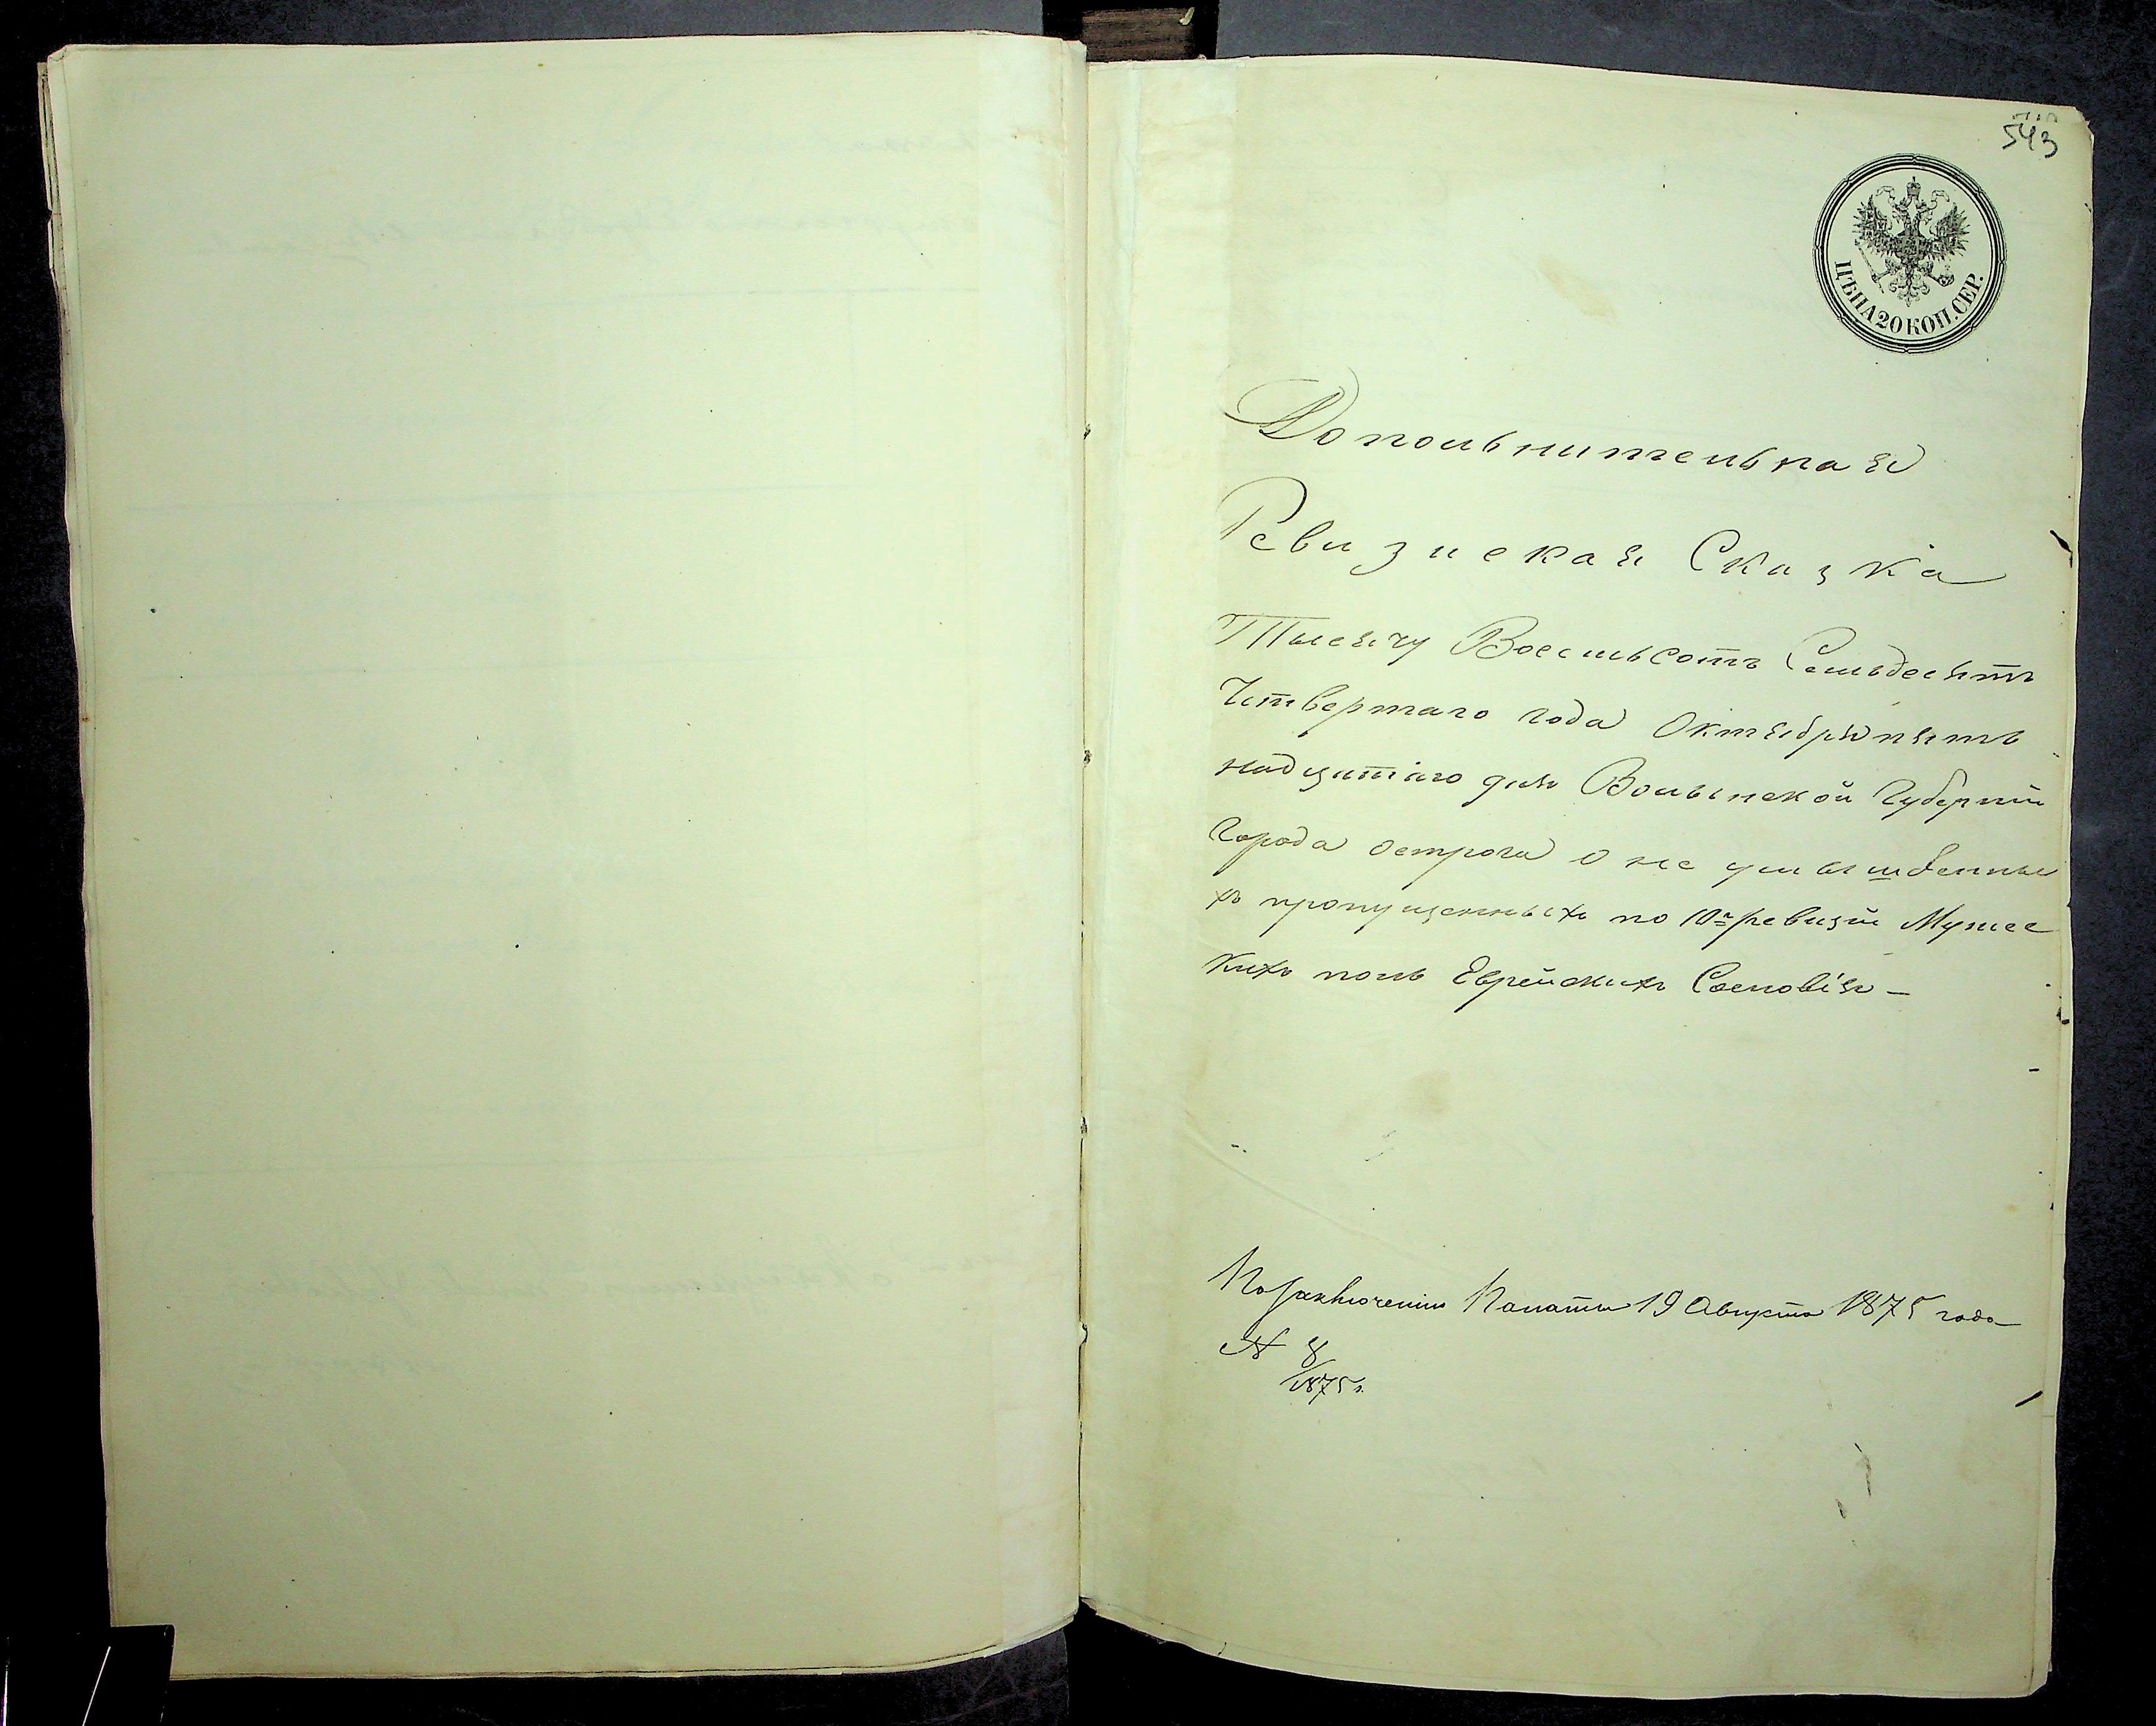 543
ЦѢНА 20 КОП. СЕР.
Допольнительная
Ревизская Сказка
Тысячу Восемьсотъ Семьдесятъ
Четвертаго года Октября пять
надцатаго дня Волынской Губерніи
Города Острога О не умышленны
хъ пропущенныхъ по 10й ревизіи Мужес
кихъ полъ Еврейскихъ Сословія -
По заключенію Палаты 19 Августа 1875 года
№ 8/1875 г.